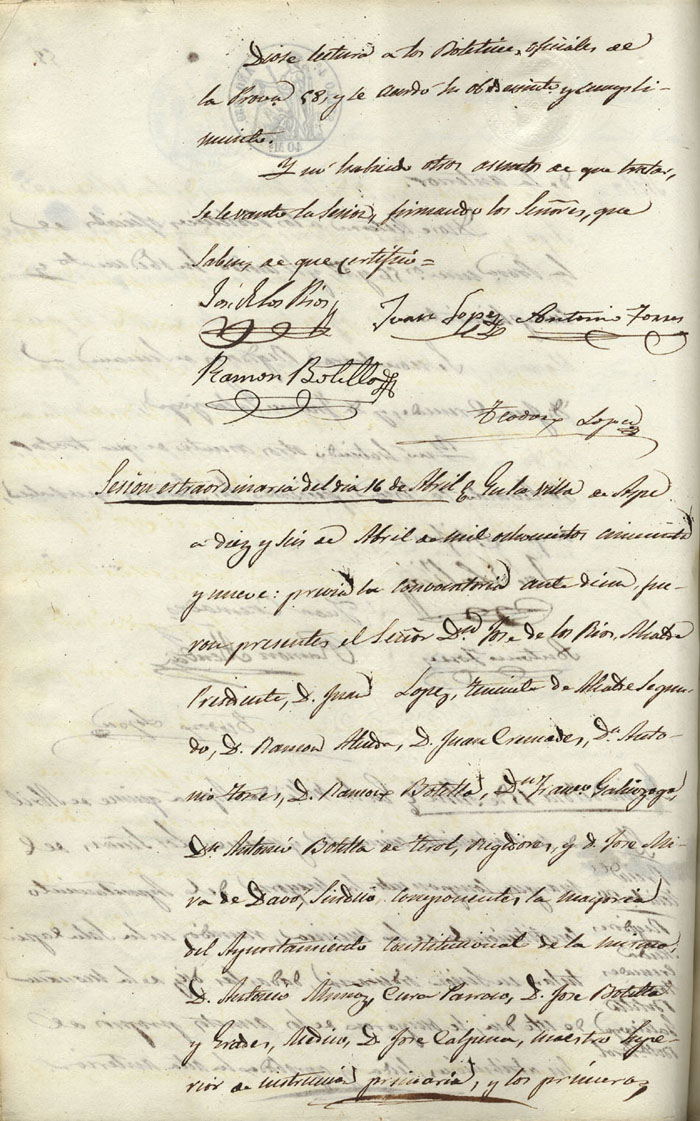 Diose lectura a los Boletines oficiales de
la Prova 58, y se acordó su obedecimto y cumpli-
miento.
Y no habiendo otros asuntos de que tratar,
se levantó la Sesion, firmando los Señores, que
saben, de que certifico=
José de los Rios
Juan Lopez
Antonio Torres
Ramon Botella
Teodoro Lopez
Sesion extraordinaria del dia 16 de Abril
En la villa de Aspe
a diez y seis de Abril de mil ochocientos cincuenta
y nueve: previa la convocatoria ante diem, fue-
ron presentes el Señor Dn Jose de los Rios, Alcalde
Presidente, D. Juan Lopez, teniente de Alcalde Segun-
do, D. Ramon Alcolea, D. Juan Cremades, Dn Anto-
nio Torres, D. Ramon Botella, Dn Franco Galinzoga,
Dn Antonio Botella de Terol, Regidores, y D. Jose Mi-
ra de Davo, Sindico, componentes la mayoria
del Ayuntamiento Constitucional de la misma,
D. Antonio Muñoz, Cura Parroco, D. Jose Botella
y Erades, Medico, D. Jose Calpena, maestro Supe-
rior de instruccion primaria, y los primeros